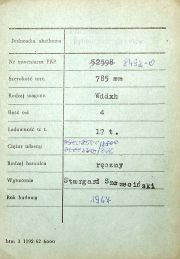 Jednostka służbowa
Nr inwentarza PKP 52598 8432-0
Szerokość toru 785 mm
Rodzaj wagonu Wddxh
Ilość osi 4
Ładowność w t. 17 t.
Ciężar własny
Rodzaj hamulca ręczny
Wytwórnia Stargard Szczeciński
Rok budowy 1964